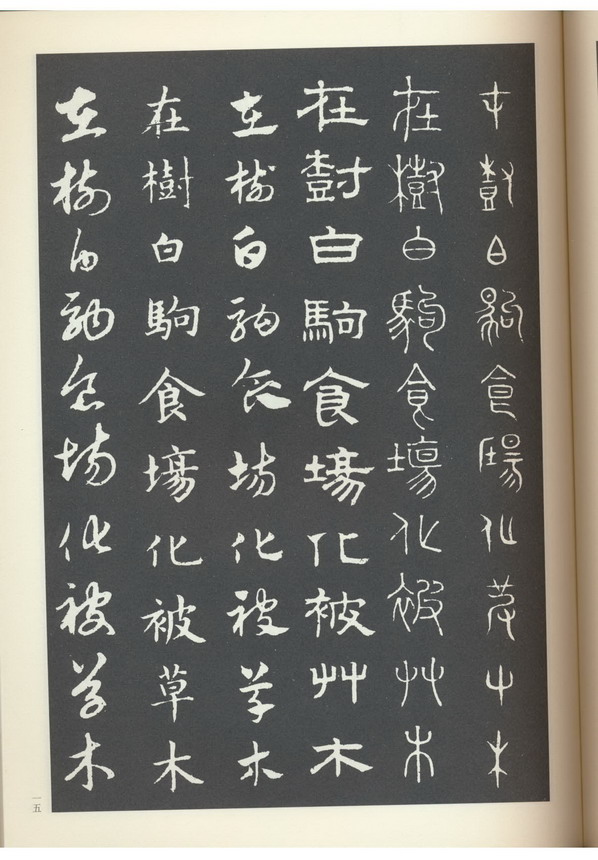 在樹白駒食場化被草木
在樹白駒食場化被草木
在樹白駒食場化被艸木
在樹白駒食場化被草木
在樹白駒食場化被草木
在樹白駒食場化被草木
一五